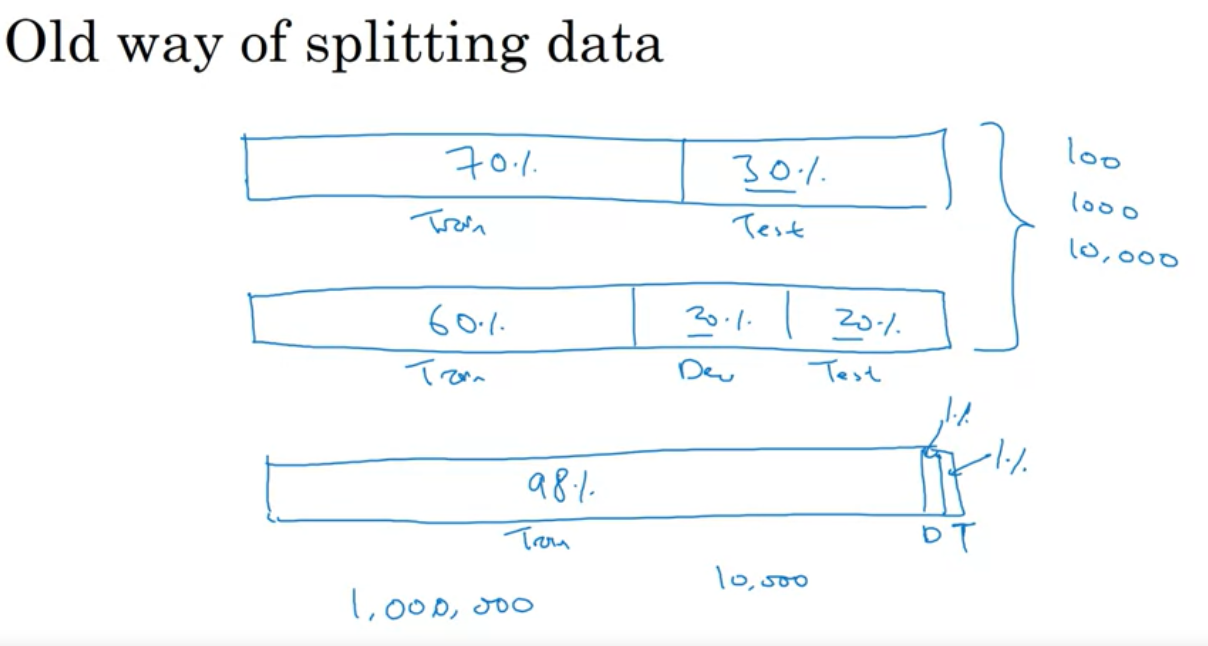 Old way of splitting data
70% 30%
Train Test
100
1000
10,000
60% 20% 20%
Train Dev Test
1%
98% 1%
Train D T
10,000
1,000,000